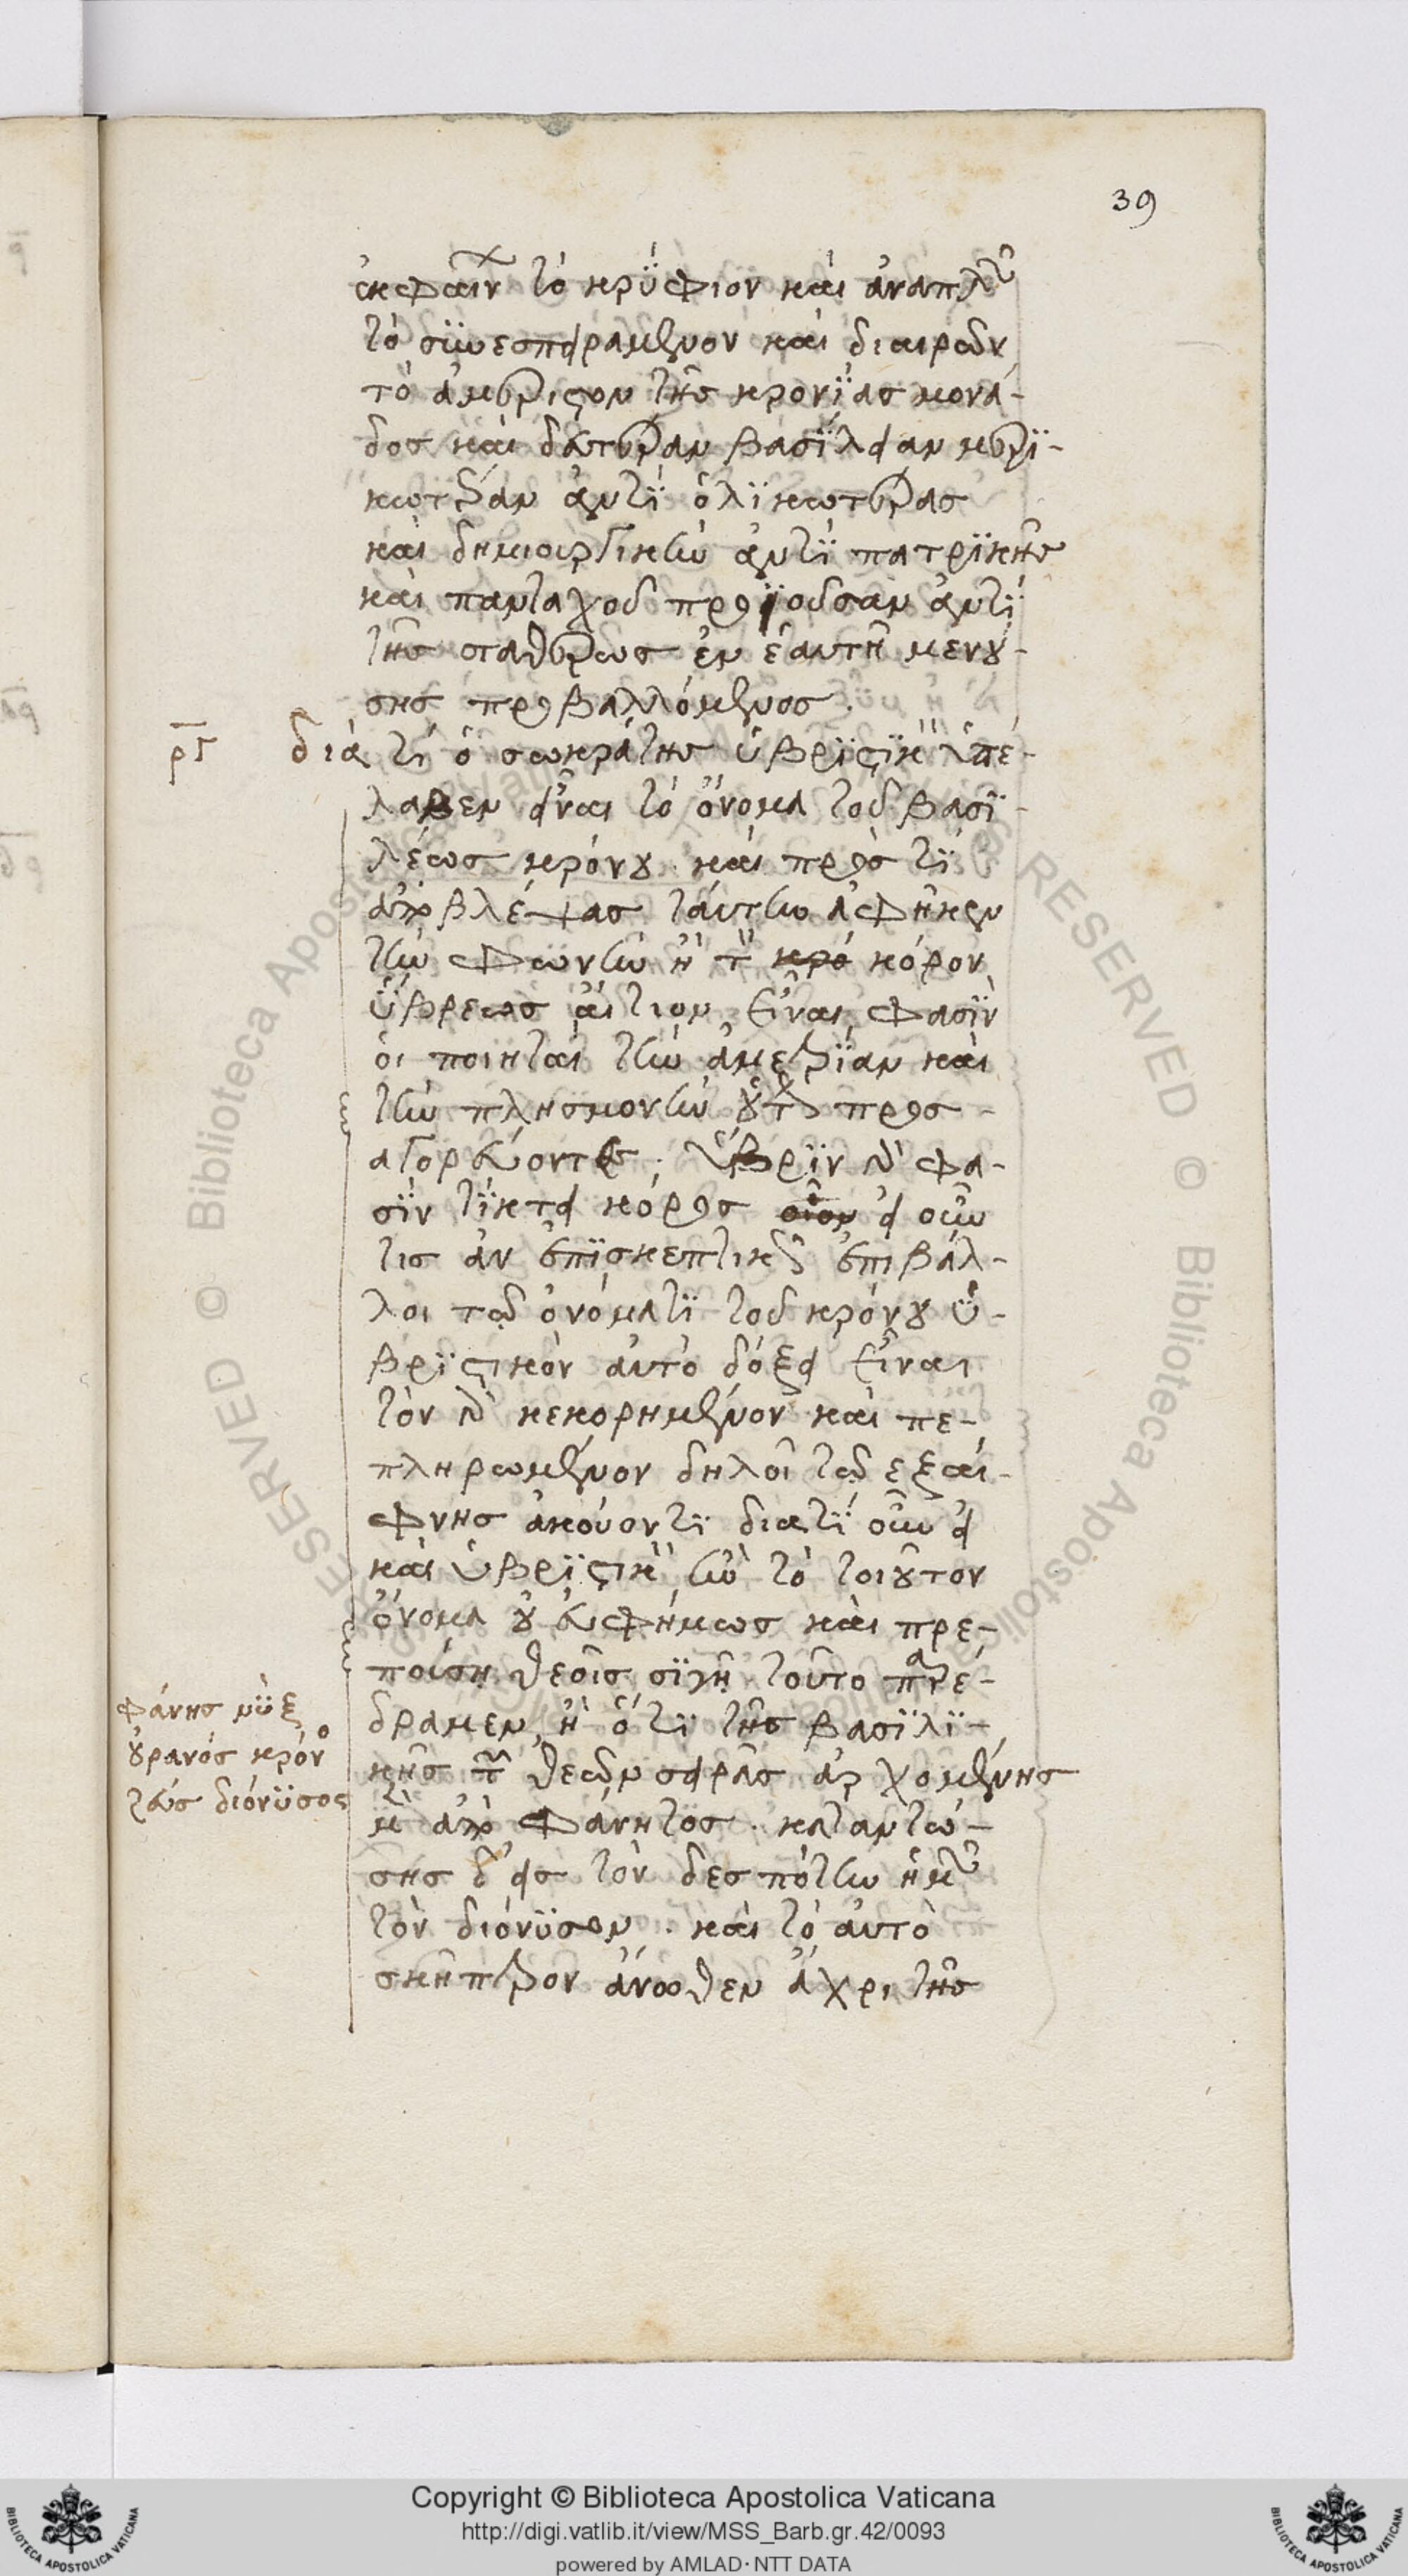 39
ἐκφαίνων τὸ κρύφιον καὶ ἀναπλῶν
τὸ συνεσπειραμένον καὶ διαιρῶν
τὸ ἀμέριστον τῆς κρονίας μονά-
δος καὶ δευτέραν βασίλειαν μερι-
κωτέραν ἀντὶ ὁλικωτέρας
καὶ δημιουργικὴν ἀντὶ πατρικῆς
καὶ πανταχοῦ προϊοῦσαν ἀντὶ
τῆς σταθερῶς ἐν ἑαυτῇ μενού-
σης προβαλλόμενος.
ργ διὰ τί ὁ σωκράτης ὑβριστικὸν ὑπέ-
λαβεν εἶναι τὸ ὄνομα τοῦ βασι-
λέως κρόνου. καὶ πρὸς τί
ἀποβλέψας ταύτην ἀφῆκεν
τὴν φωνὴν ἢ τὸν κρό κόρον
ὕβρεως αἴτιον εἶναι φασὶν
οἱ ποιηταὶ τὴν ἀμετρίαν καὶ
τὴν πλησμονὴν οὕτω προσ-
αγορεύοντες. ὕβριν δὲ φα-
σὶν τίκτει κόρος οἷον εἰ οὖν
τις ἀνεπισκέπτως ἐπιβάλ-
λοι τῷ ὀνόματι τοῦ κρόνου ὑ-
βριστικὸν αὐτὸ δόξει εἶναι
τὸν δὲ κεκορημένον καὶ πε-
πληρωμένον δηλοῖ τῷ ἐξαί-
φνης ἀκούοντι διατί οὖν εἰ
καὶ ὑβριστικὸν ἦν τὸ τοιοῦτον
ὄνομα οὐκ εὐφήμως καὶ πρε-
ποίσῃ θεοῖς σιγῇ τοῦτο παρέ-
δραμεν, ἢ ὅτι τῆς βασιλι-
κῆς τῶν θεῶν σειρᾶς ἀρχομένης
μὲν ἀπὸ φάνητος. καταντώ-
σης δὲ εἰς τὸν δεσπότην ἡμῶν
τὸν διόνυσον. καὶ τὸ αὐτὸ
σκῆπτρον ἄνωθεν ἄχρι τῆς
φάνης νὺξ
οὐρανός κρόνος
ζεύς διόνυσος
Copyright © Biblioteca Apostolica Vaticana
http://digi.vatlib.it/view/MSS_Barb.gr.42/0093
powered by AMLAD·NTT DATA